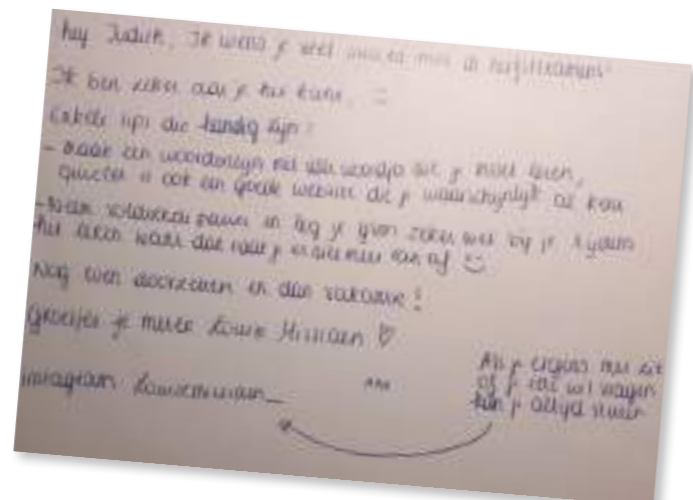 hey Judith, Ik wens je veel succes met de
Ik ben zeker dat je het kunt. :)
Enkele tips die handig zijn:
- Maak een woordenlijst met alle woordjes die je moet leren,
quizlet is ook een goede website die je waarschijnlijk al kent
- Neem voldoende pauzes en leg je gsm zeker weg bij je
het leren want dan raak je er niet meer van af :)
Nog even doorzetten en dan vakantie!
Groetjes je meter ♡
instagram
^^^
Als je ergens mee zit
of je iets wil vragen
kun je altijd sturen